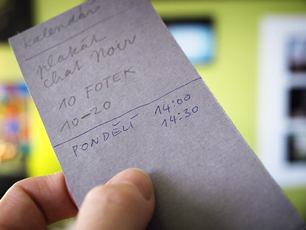 kalendář
plakát
Chat Noir
10 FOTEK
10-20
PONDĚLÍ 14:00
14:30